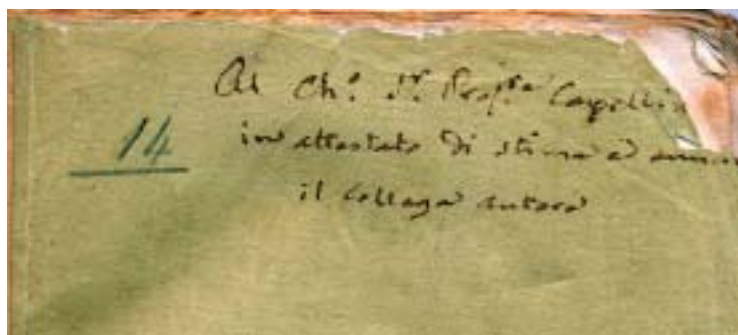 Al Ch.º S.r Prof.re Capellin
14
in attestato di stima e
il collega autore